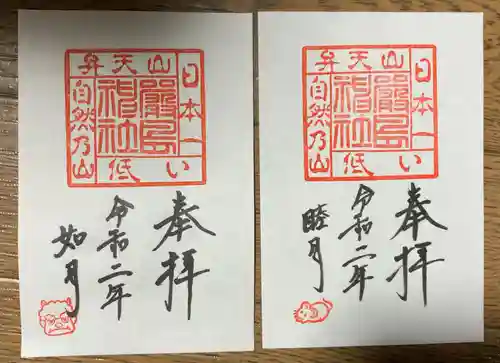 弁天山
日本一
低い
自然乃山
嚴島
神社
奉拝
令和二年
如月
弁天山
日本一
低い
自然乃山
嚴島
神社
奉拝
令和二年
睦月